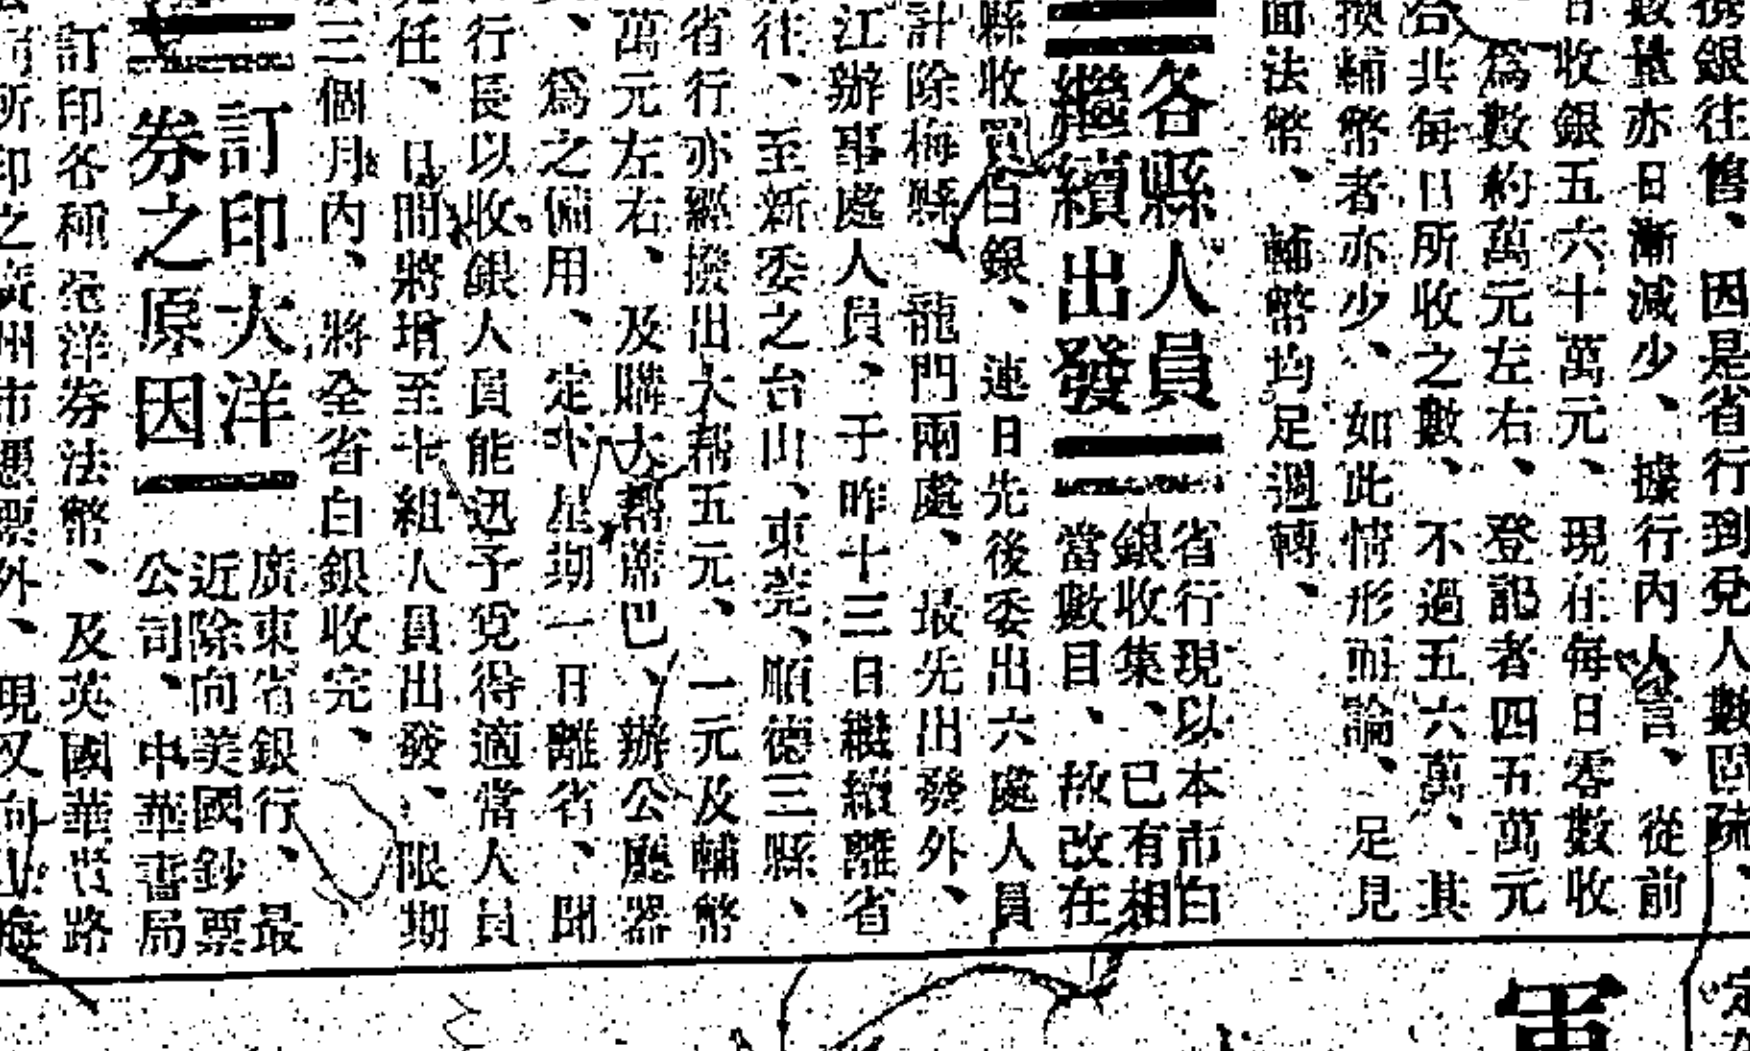 銀往售、因是省行到兌人數囙疏、
數量亦日漸減少、據行內人言、從前
日收銀五六十萬元、現在每日零數收
爲數約萬元左右、登記者四五萬元
合共每日所收之數、不過五六萬、其
換輔幣者亦少、如此情形而論、足見
面法幣、輔幣均足週轉、
各縣人員
繼續出發
省行現以本市白
銀收集、已有相
當數目、故改在
縣收買白銀、連日先後委出六處人員
計除梅縣、龍門兩處、最先出發外、
江辦事處人員、于昨十三日繼續離省
往、至新委之台山、東莞、順德三縣、
省行亦經撥出大帮五元、一元及輔幣
萬元左右、及購大帮蓆巴、辦公廳器
、爲之備用、定本星期一日離省、聞
行長以收銀人員能迅予覓得適當人員
任、日間將增至十組人員出發、限期
三個月內、將全省白銀收完、
訂印大洋
券之原因
廣東省銀行、最
近除向美國鈔票
公司、中華書局
訂印各種毫洋券法幣、及英國華費路
所印之廣州市憑票外、現又向上海
軍
定